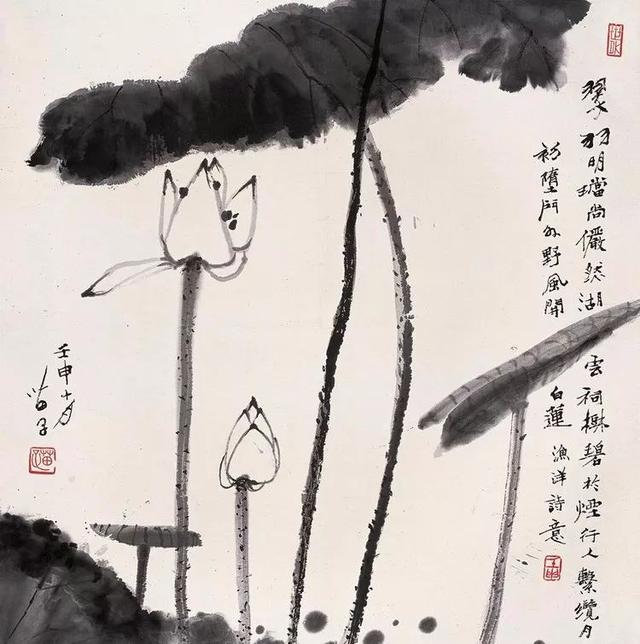 翠羽明璫尚儼然湖雲祠樹碧於煙行人繫纜月
初墮門外野風開白蓮 漁洋詩意
壬申
壬申十月
苗子